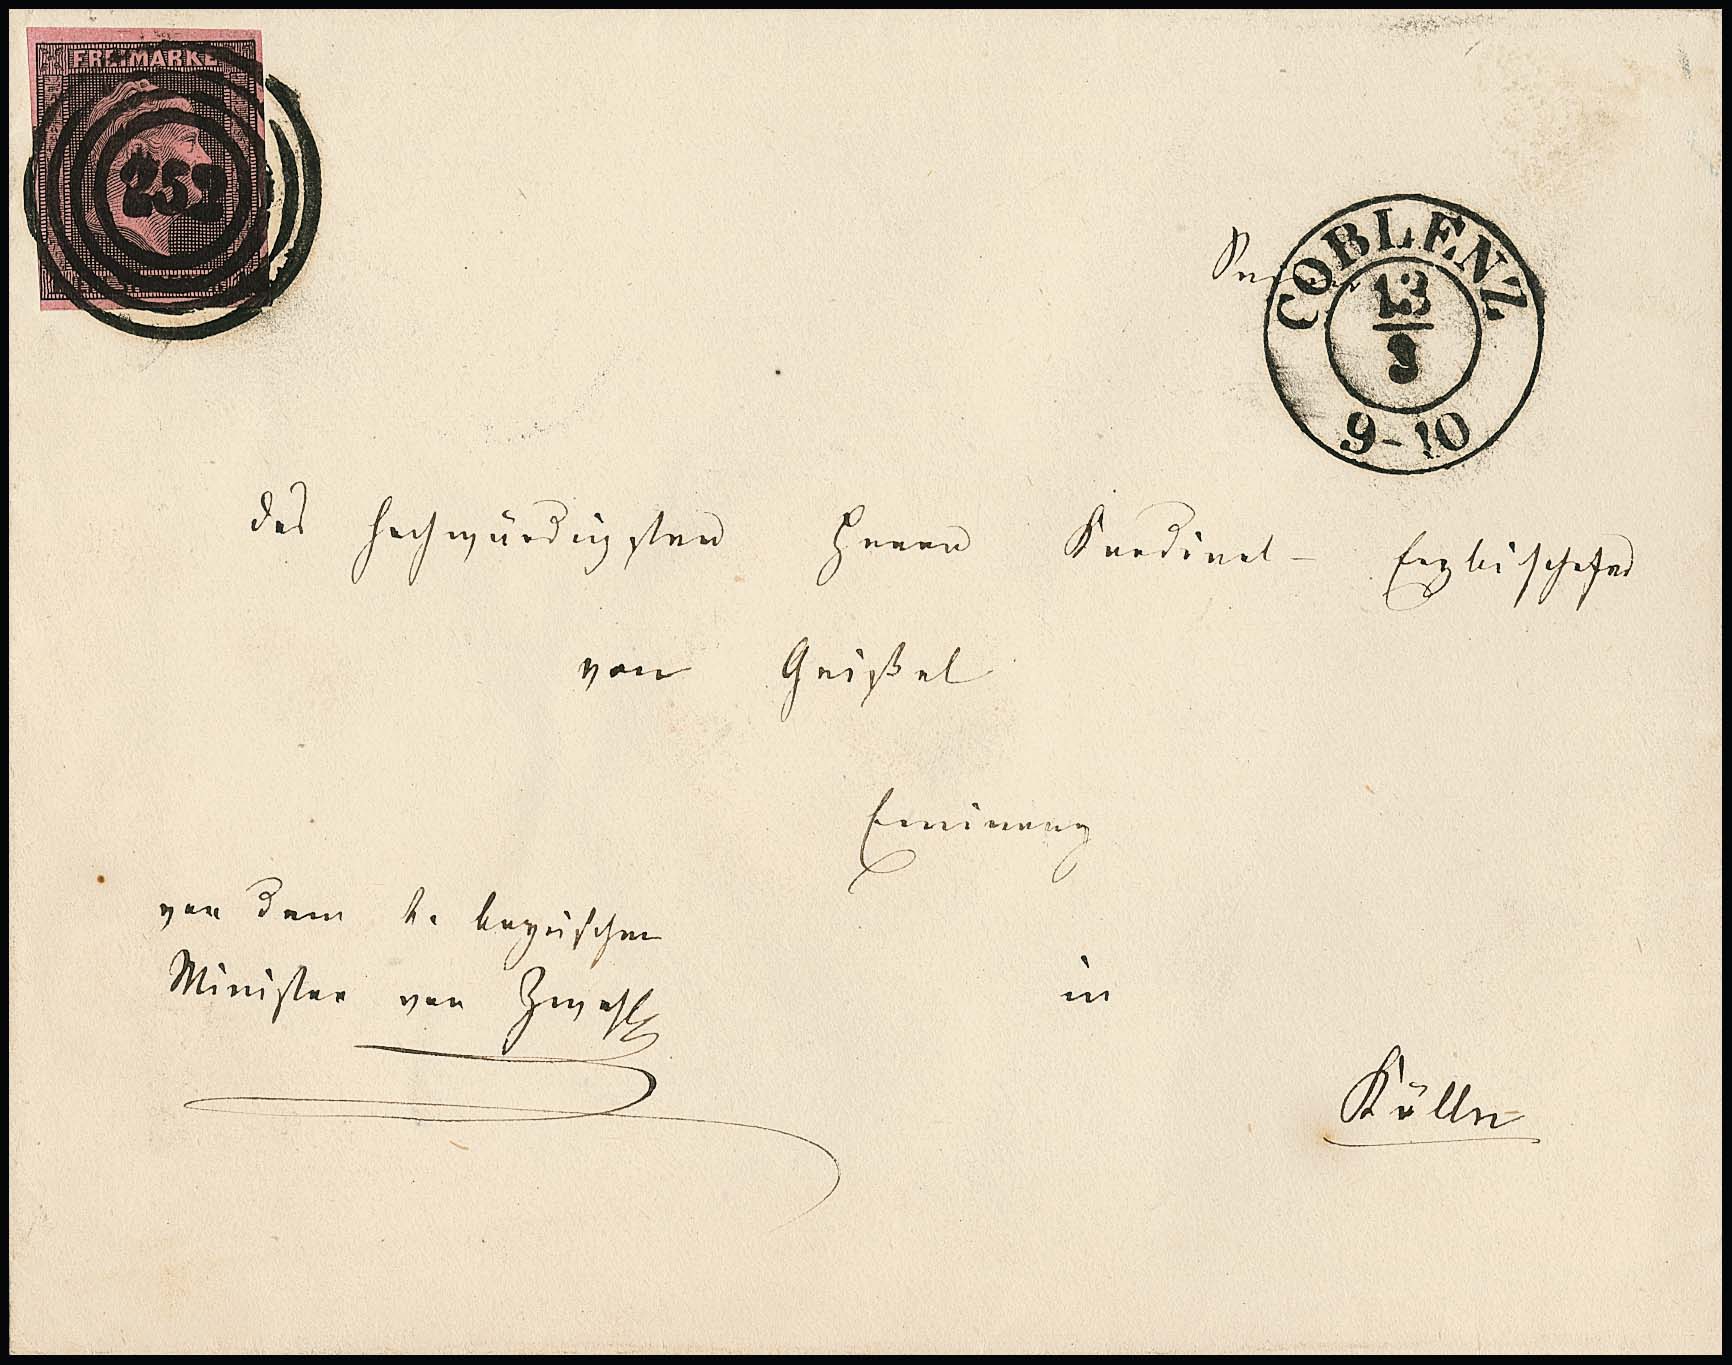 FREIMARKE
252
COBLENZ
13
9
9-10
des hochwürdigsten Herrn Kardinal- Erzbischofes
von Geißel
Eminenz
von dem k. bayrischen
Minister von Zwehl
in
Kölln